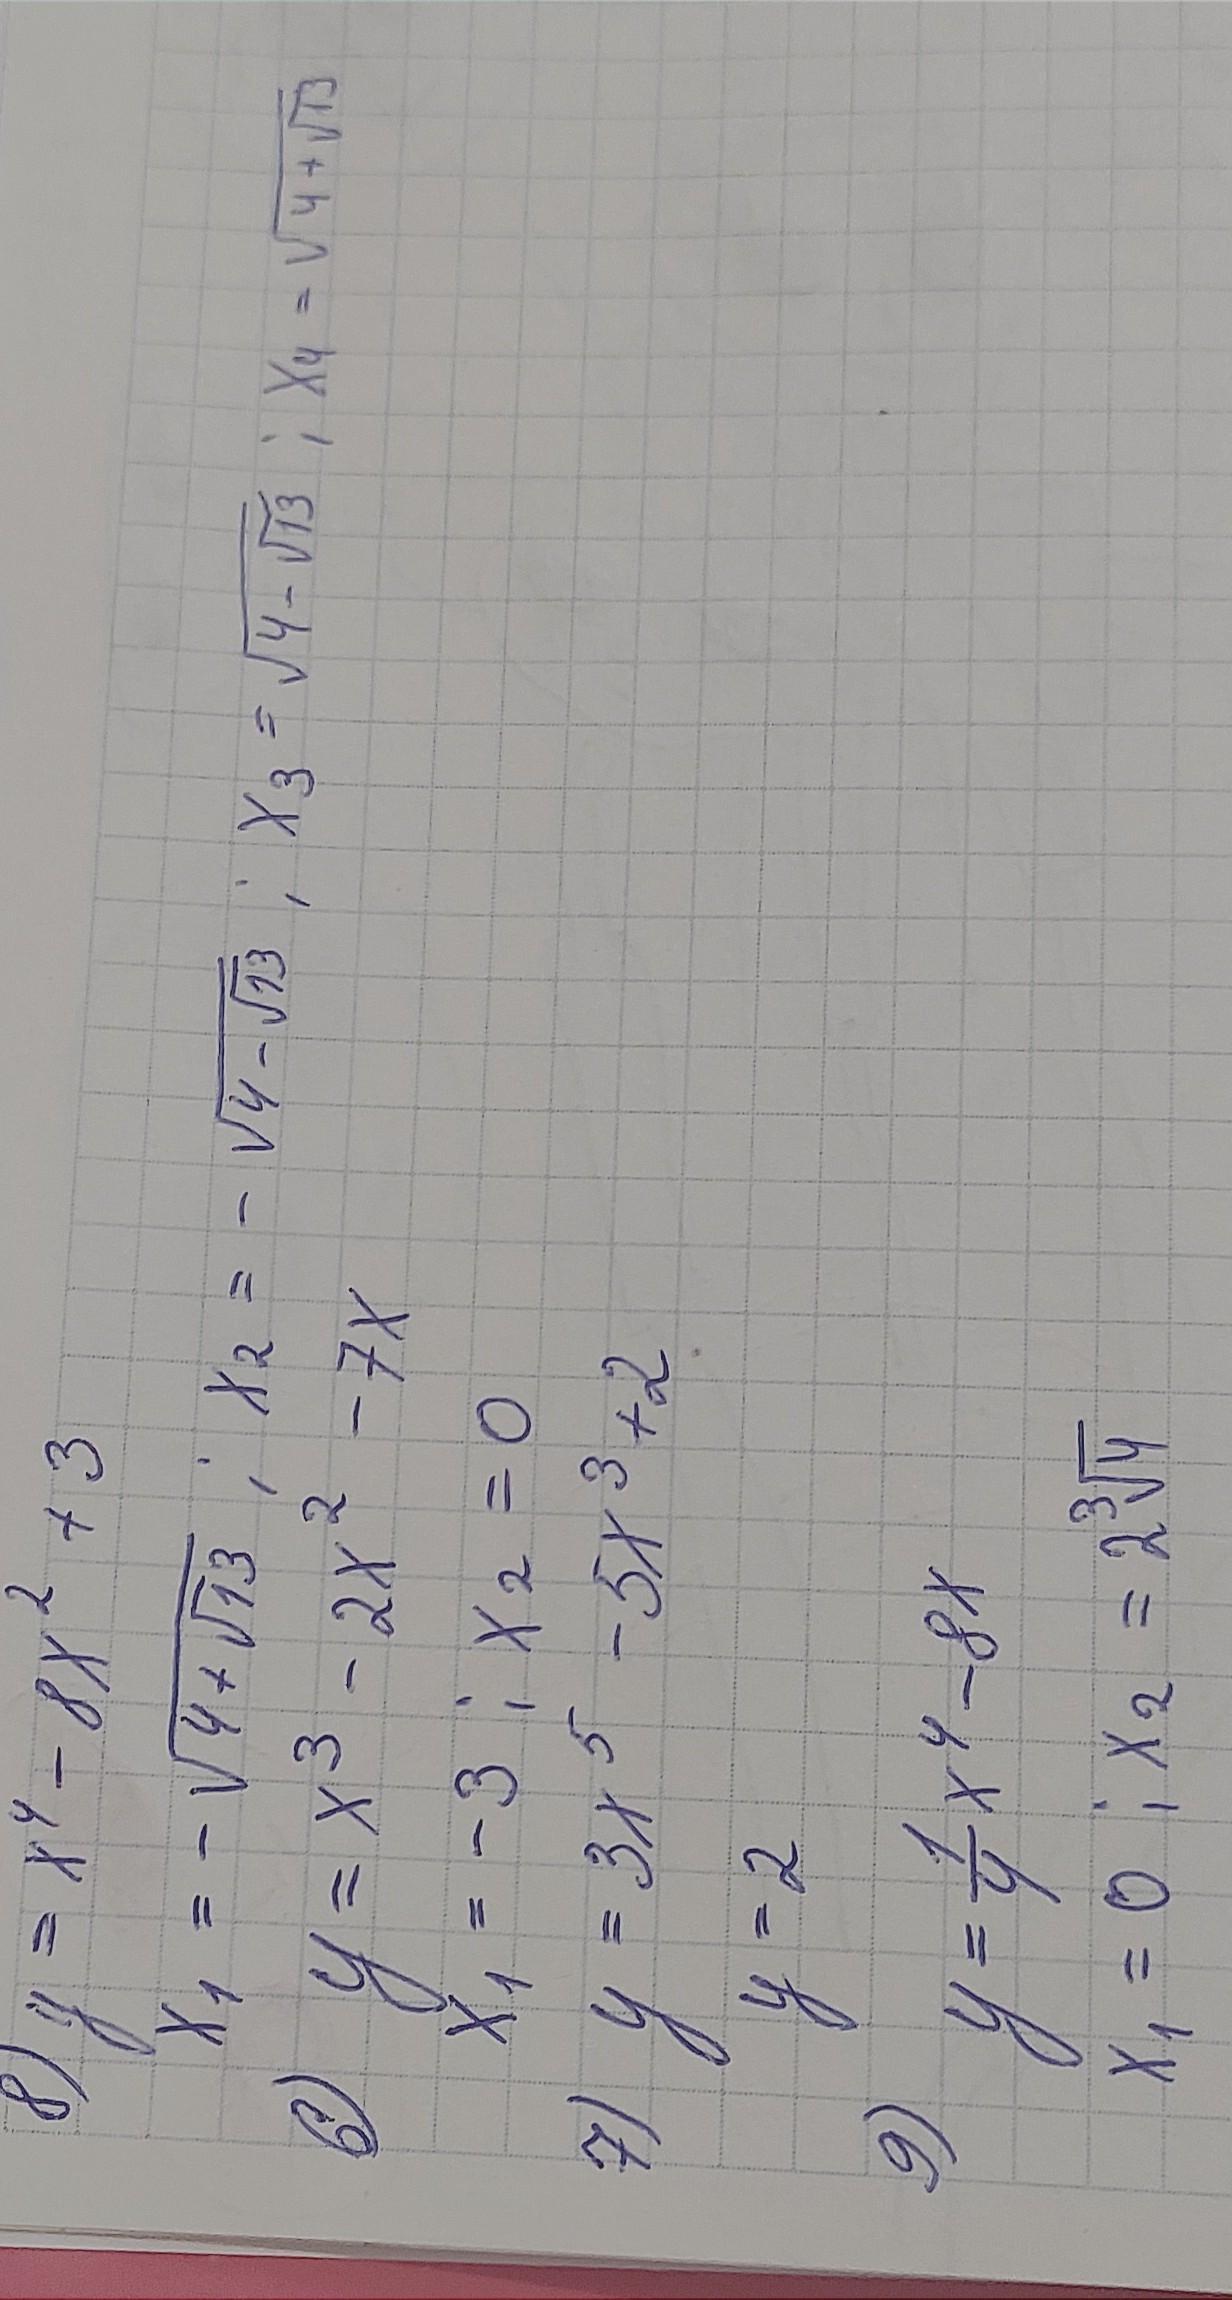 8) y = x⁴ - 8x² + 3
x₁ = -√(4+√13) ; x₂ = -√(4-√13) ; x₃ = √(4-√13) ; x₄ = √(4+√13)
6) y = x³ - 2x² - 7x
x₁ = -3 ; x₂ = 0
7) y = 3x⁵ - 5x³ + 2
y = 2
9) y = 1/4 x⁴ - 8x
x₁ = 0 ; x₂ = 2∛4